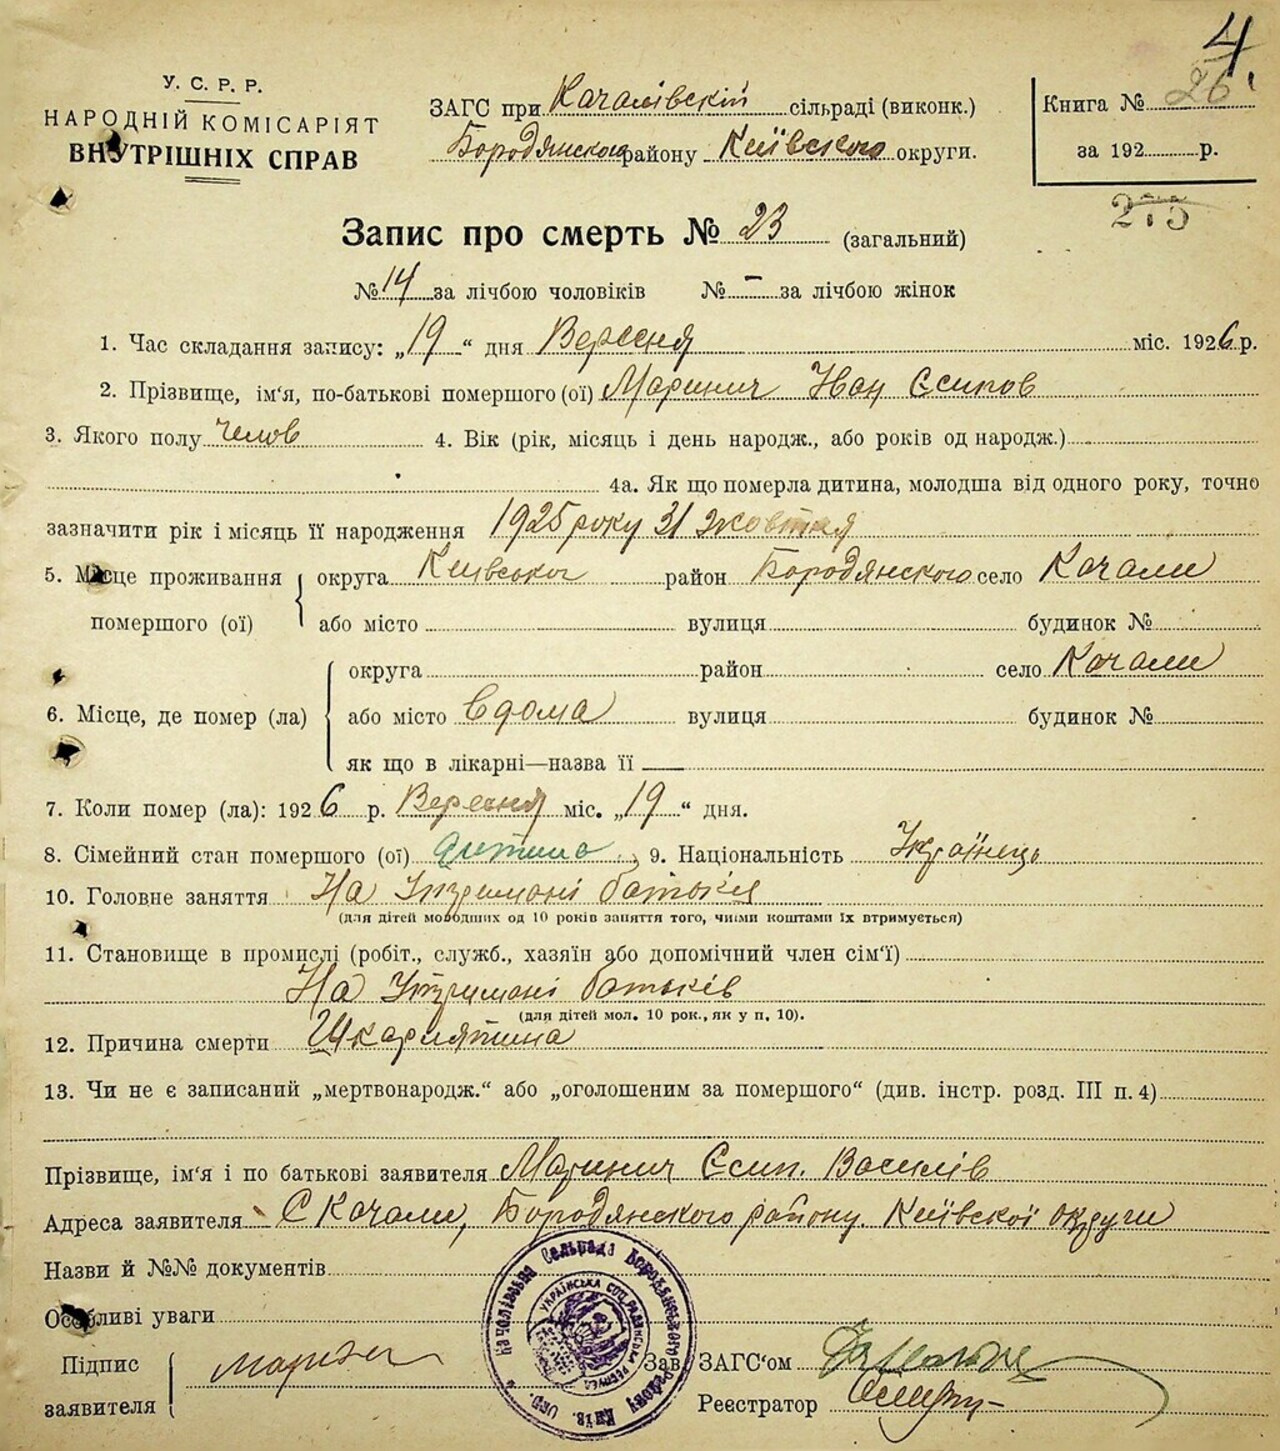 4
У. С. Р. Р.
НАРОДНІЙ КОМІСАРІЯТ
ВНУТРІШНІХ СПРАВ
ЗАГС при Качалівскій сільраді (виконк.)
Бородянского району Київского округи.
Книга № 26
за 192 р.
275
Запис про смерть № 23 (загальний)
№ 14 за лічбою чоловіків № – за лічбою жінок
1. Час складання запису: „19“ дня Вересня міс. 1926 р.
2. Прізвище, ім'я, по-батькові помершого (ої) Маринич Іван Єсипов
3. Якого полу челов 4. Вік (рік, місяць і день народж., або років од народж.)
4а. Як що померла дитина, молодша від одного року, точно
зазначити рік і місяць її народження 1925 року 31 жовтня
5. Місце проживання помершого (ої) округа Київської район Бородянского село Качали
або місто вулиця будинок №
6. Місце, де помер (ла) округа район село Качали
або місто вдома вулиця будинок №
як що в лікарні—назва її
7. Коли помер (ла): 1926 р. Вересня міс. „19“ дня.
8. Сімейний стан помершого (ої) дитина, 9. Національність Українець
10. Головне заняття На утримані батьків
(для дітей молодших од 10 років заняття того, чиїми коштами їх втримується)
11. Становище в промислі (робіт., служб., хазяїн або допомічний член сім'ї)
На утримані батьків
(для дітей мол. 10 рок., як у п. 10).
12. Причина смерти Шкарлятина
13. Чи не є записаний „мертвонародж.“ або „оголошеним за помершого“ (див. інстр. розд. III п. 4)
Прізвище, ім'я і по батькові заявителя Маринич Єсип. Василів
Адреса заявителя С Качали, Бородянского району. Київскої округи
Назви й №№ документів
Особливі уваги
Підпис заявителя
Зав. ЗАГС'ом
Реєстратор
Качалівська Сельрада Бородянського Району Київ. Окр.
УКРАЇНСЬКА СОЦ. РАДЯНСЬКА РЕСПУБ